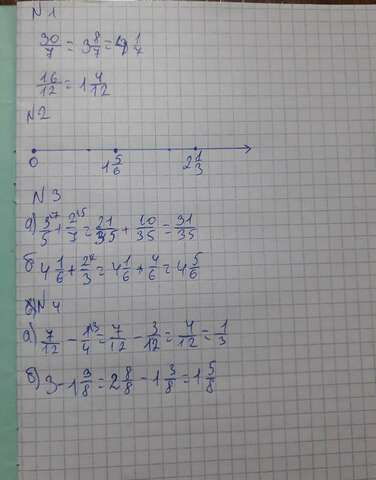 N 1
30/7 = 3 8/7 = 4 1/7
16/12 = 1 4/12
N2
0 1 5/6 2 1/3
N 3
а) 3/5 ⁷ + 2/7 ⁵ = 21/35 + 10/35 = 31/35
б) 4 1/6 + 2/3 ² = 4 1/6 + 4/6 = 4 5/6
N 4
а) 7/12 - 1/4 ³ = 7/12 - 3/12 = 4/12 = 1/3
б) 3 - 1 3/8 = 2 8/8 - 1 3/8 = 1 5/8